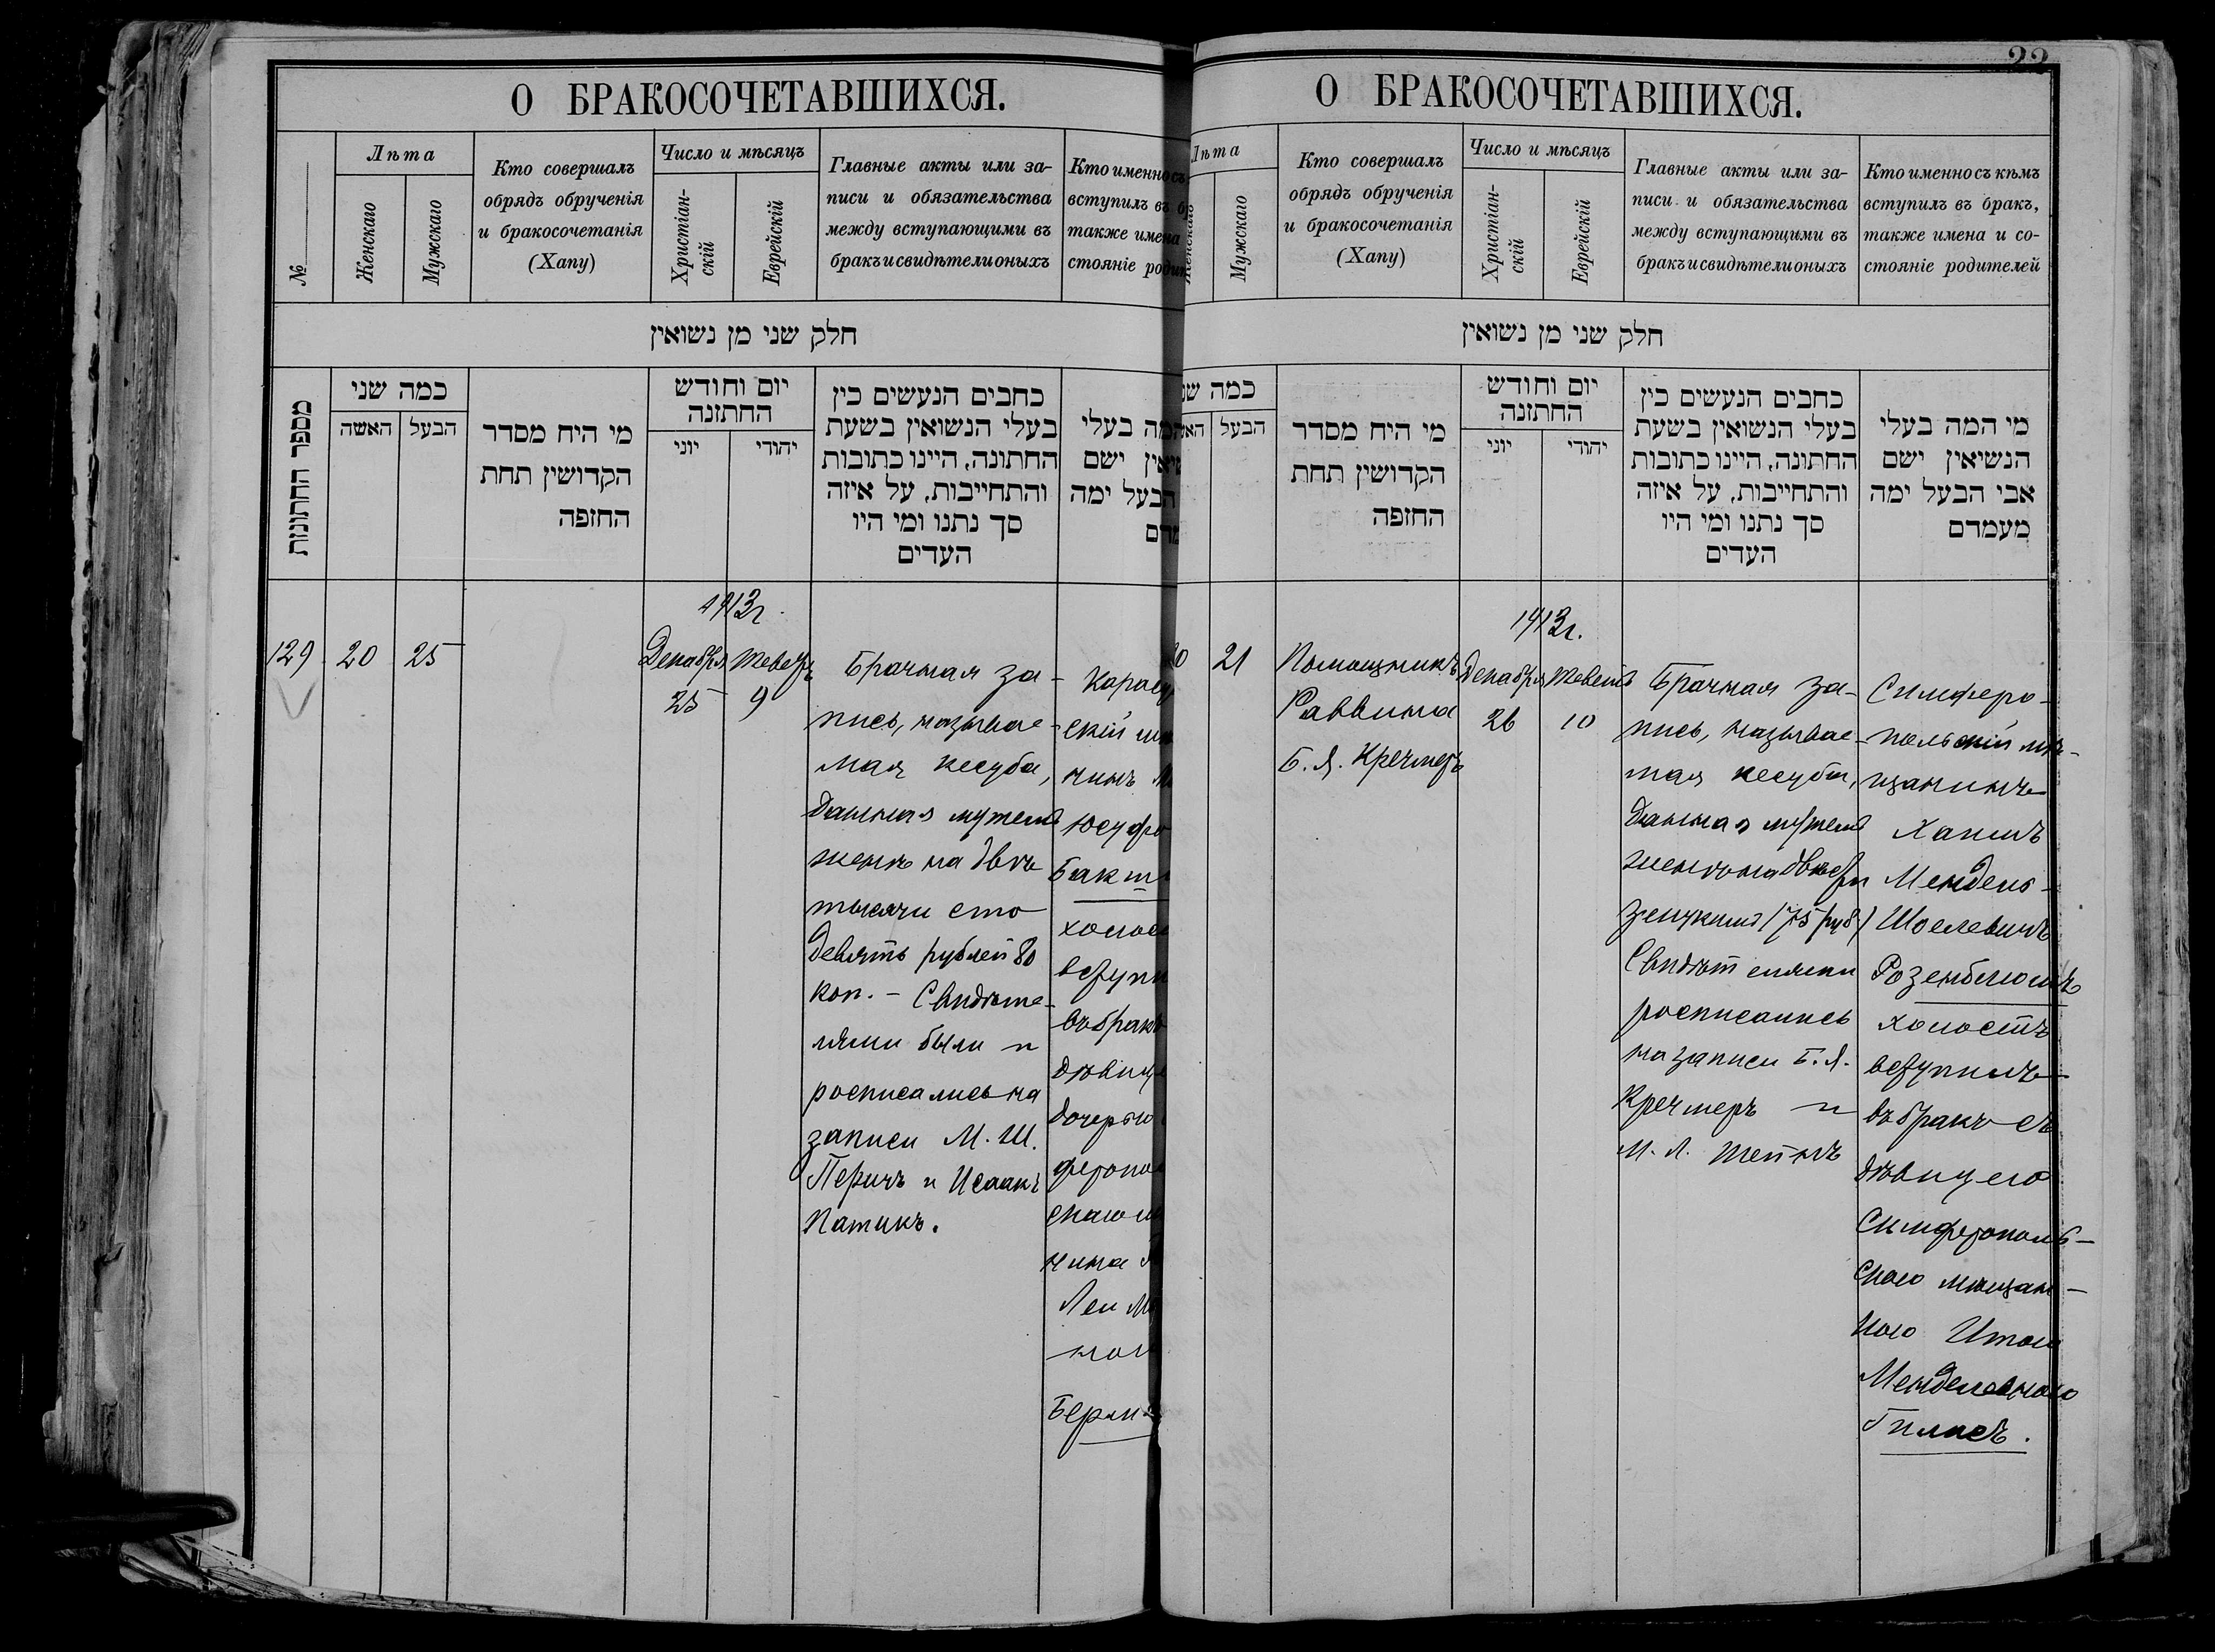 О БРАКОСОЧЕТАВШИХСЯ.
№
Лѣта
Женскаго
Мужскаго
Кто совершалъ
обрядъ обрученія
и бракосочетанія
(Хапу)
Число и мѣсяцъ
Христіан-
скій
Еврейскій
Главные акты или за-
писи и обязательства
между вступающими въ
бракъ и свидѣтели оныхъ
Кто именно съ
вступилъ въ
также имена
стояніе
חלק שני מן נשואין
מספר החתונות
כמה שני
האשה
הבעל
מי היח מסדר
הקדושין תחת
החזפה
יום וחודש
החתזנה
יוני
יהודי
כחבים הנעשים כין
בעלי הנשואין בשעת
החתונה, היינו כתובות
והתחייבות, על איזה
סך נתנו ומי היו
העדים
בעלי
ישם
הבעל ימה
129
20
25
1913г.
Декабря
25
9
Брачная за-
пись, называе-
мая кесуба,
данная мужемъ
женѣ на двѣ
тысячи сто
девять рублей 80
коп. – Свидѣте-
лями были и
росписались на
записи М. Ш.
Перичъ и Исаакъ
Патикъ.
скій
чинъ
въ бракъ
дочерью
чина
Леи
22
О БРАКОСОЧЕТАВШИХСЯ.
Лѣта
Женскаго
Мужскаго
Кто совершалъ
обрядъ обрученія
и бракосочетанія
(Хапу)
Число и мѣсяцъ
Христіан-
скій
Еврейскій
Главные акты или за-
писи и обязательства
между вступающими въ
бракъ и свидѣтели оныхъ
Кто именно съ кѣмъ
вступилъ въ бракъ,
также имена и со-
стояніе родителей
חלק שני מן נשואין
כמה
הבעל
מי היח מסדר
הקדושין תחת
החזפה
יום וחודש
החתזנה
יוני
יהודי
כחבים הנעשים כין
בעלי הנשואין בשעת
החתונה, היינו כתובות
והתחייבות, על איזה
סך נתנו ומי היו
העדים
מי המה בעלי
הנשיאין ישם
אבי הבעל ימה
מעמדם
21
Помощникъ
Раввина
Б. Я. Кречмеръ
1913г.
Декабря
26
Теветъ
10
Брачная за-
пись, называе-
мая кесуба,
данная мужемъ
женѣ на двѣсти
зенукимъ (75 руб.)
Свидѣтелями
росписались
на записи Б. Я.
Кречмеръ и
М. Л.
Симферо-
польскій мѣ-
щанинъ
Хаимъ
Мендель
Шоелевичъ
Розенблюмъ
холостъ
вступилъ
въ бракъ съ
дѣвицею
Симферополь-
скою мѣщан-
кою Итою
Менделевною